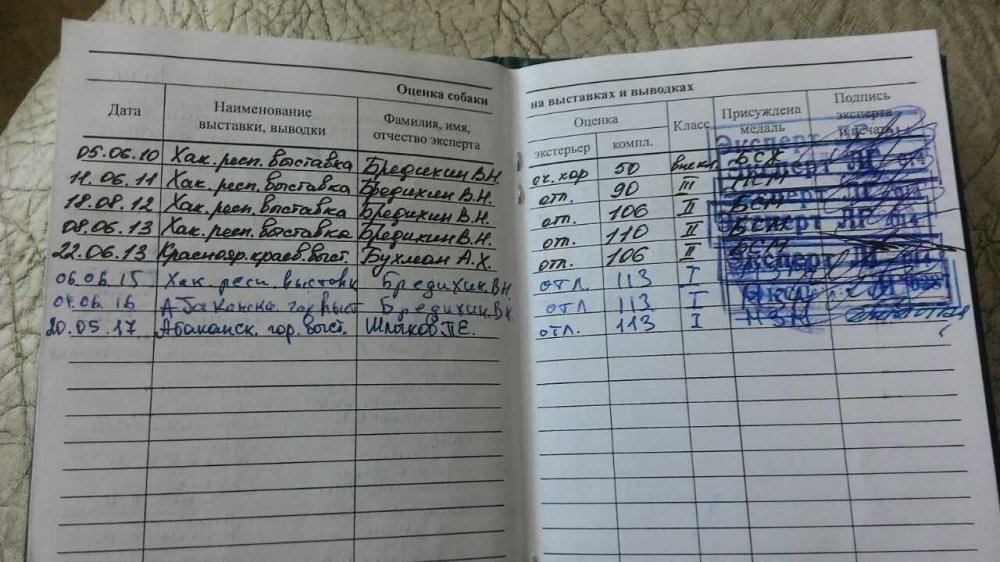 Оценка собаки на выставках и выводках
Дата Наименование выставки, выводки Фамилия, имя, отчество эксперта Оценка экстерьер компл. Класс Присуждена медаль Подпись эксперта и печать
05.06.10 Хак. респ. выставка Бредихин В.Н. оч. хор 50 внекл. БСХ
11.06.11 Хак. респ. выставка Бредихин В.Н. отл. 90 III
18.08.12 Хак. респ. выставка Бредихин В.Н. отл. 106 II БСМ
08.06.13 Хак. респ. выставка Бредихин В.Н. отл. 110 II
22.06.13 Краснояр. краев. выст. Бухман А.Х. отл. 106 II БСМ
06.06.15 Хак. респ. выставк Бредихин.В.Н. отл. 113 I
04.06.16 Абаканска. гор. выст Бредихин.В.Н. отл 113 I
20.05.17 Абаканск. гор. выст. П.Е. отл. 113 I
Эксперт
Эксперт
Эксперт
Эксперт